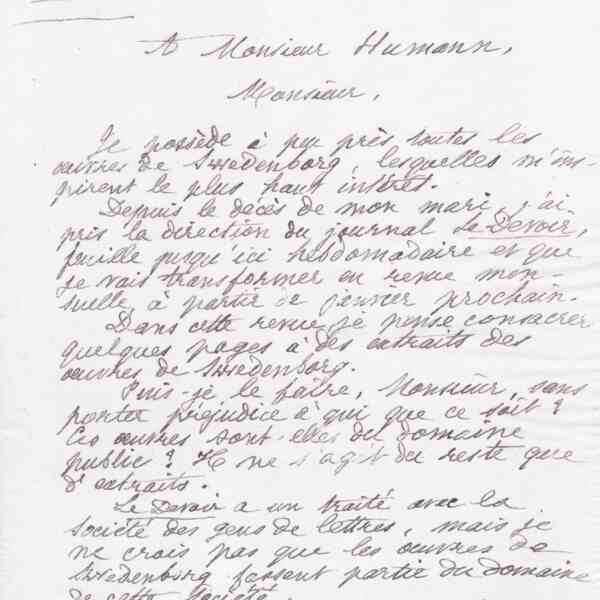 A Monsieur Humann,
Monsieur,
Je possède à peu près toutes les
œuvres de Swedenborg, lesquelles m'ins-
pirent le plus haut intérêt.
Depuis le décès de mon mari, j'ai
pris la direction du journal Le Devoir,
feuille jusqu'ici hebdomadaire et que
je vais transformer en revue men-
suelle à partir de janvier prochain.
Dans cette revue je pense consacrer
quelques pages à des extraits des
œuvres de Swedenborg.
Puis-je le faire, Monsieur, sans
porter préjudice à qui que ce soit ?
Ces œuvres sont-elles du domaine
public ? Il ne s'agit du reste que
d'extraits.
Le Devoir a un traité avec la
Société des gens de lettres, mais je
ne crois pas que les œuvres de
Swedenborg fassent partie du domaine
de cette Société.